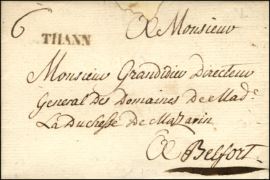 6
THANN
A Monsieur
Monsieur Grandidier Directeur
General des Domaines de Mad.e
La Duchesse de Mazarin
A Belfort.